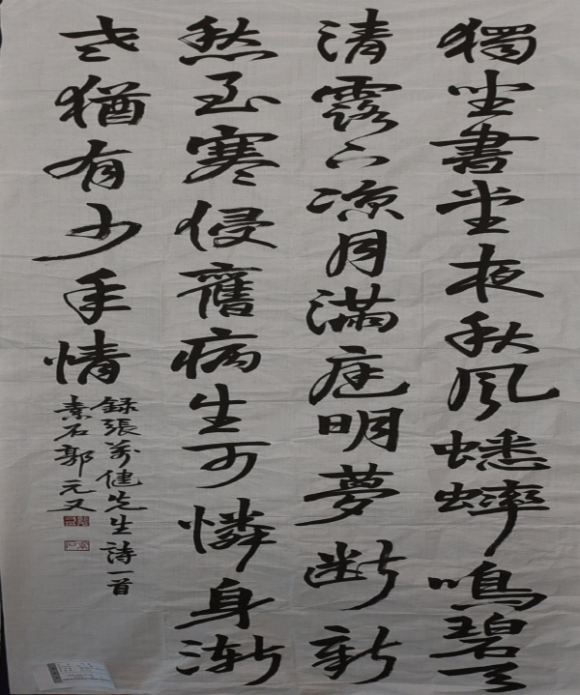 獨坐書堂夜秋風蟋蟀鳴碧天
清露下涼月滿庭明夢斷新
愁至寒侵舊病生可憐身漸
老猶有少年情
録張萬健先生詩一首
素石郭元又